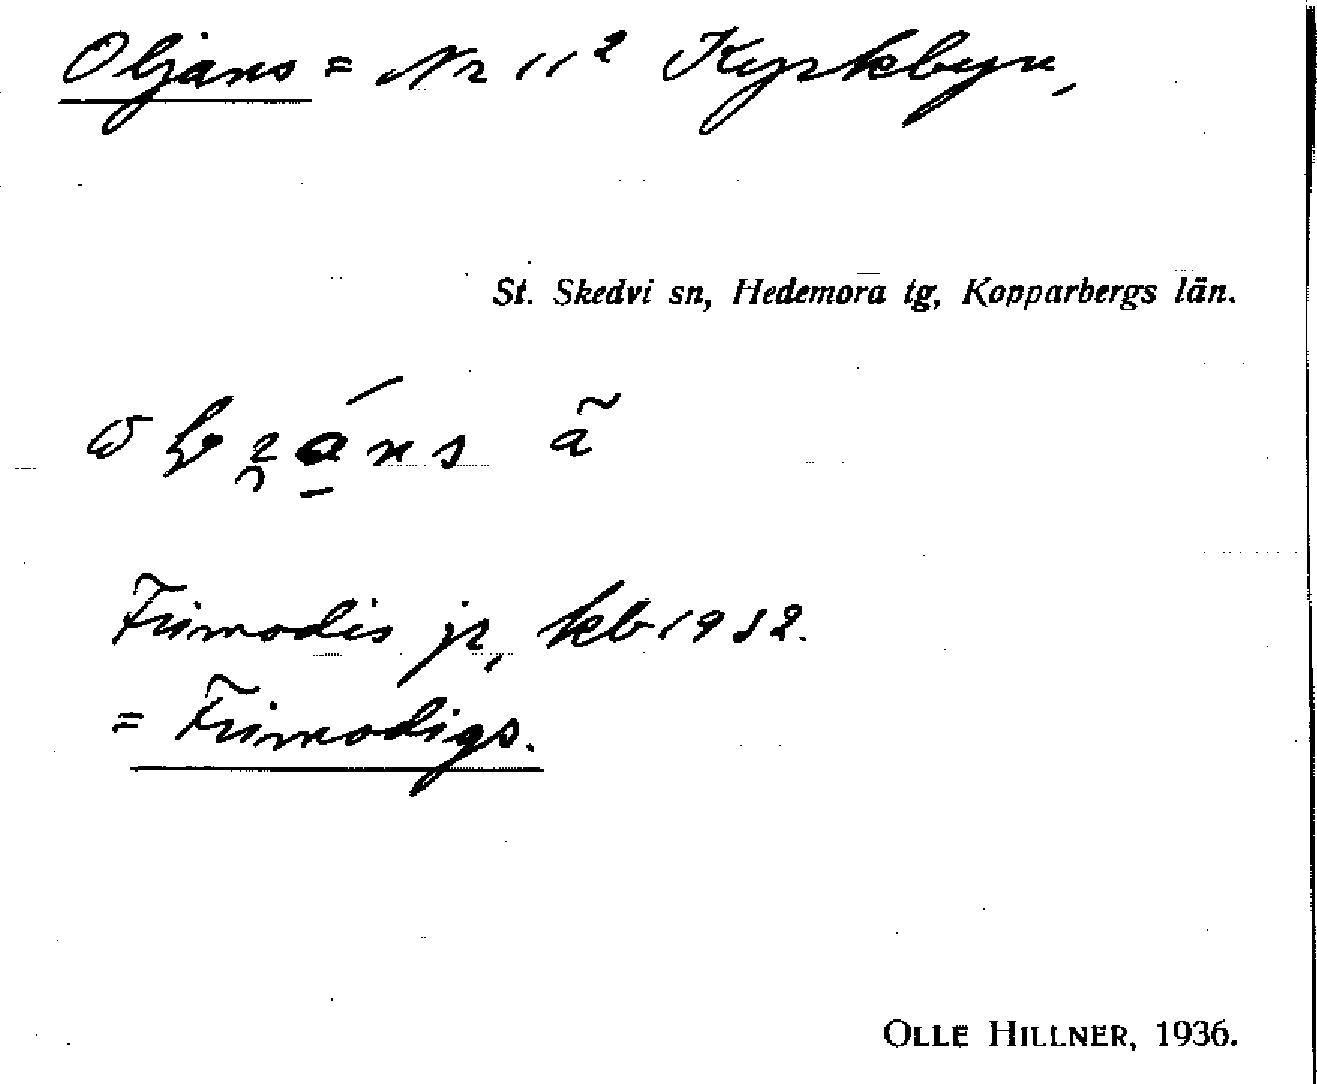 Oljans = Nr 11² Kyrkbyn,
St. Skedvi sn, Hedemora tg, Kopparbergs län.
Frimodis jr, kb 1932.
= Frimodigs.
OLLE HILLNER, 1936.